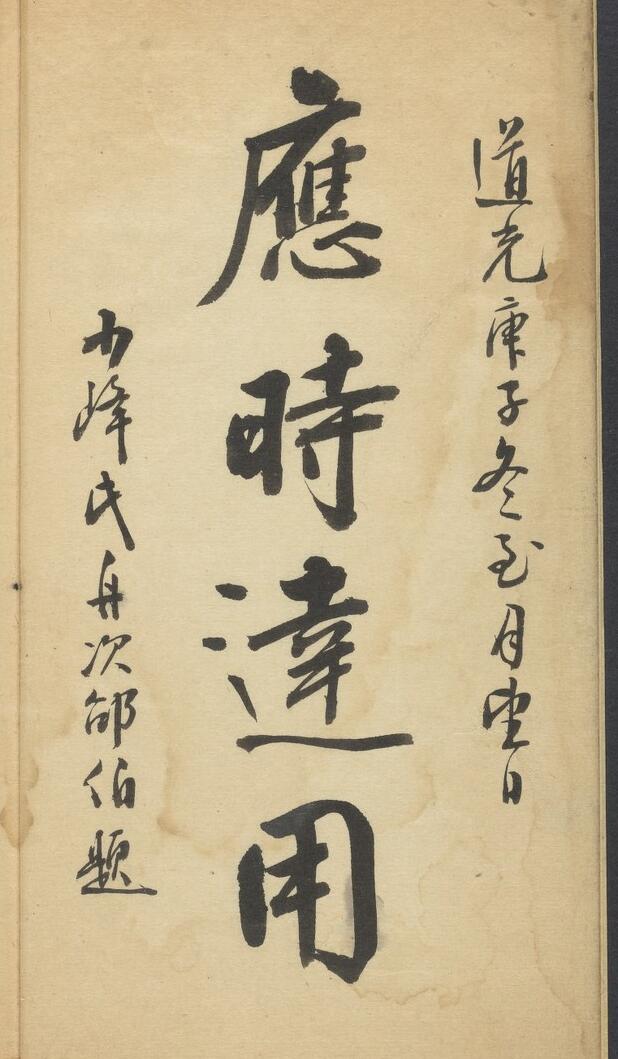 道光庚子冬至月望日
應時達用
小峰氏舟次邰伯題